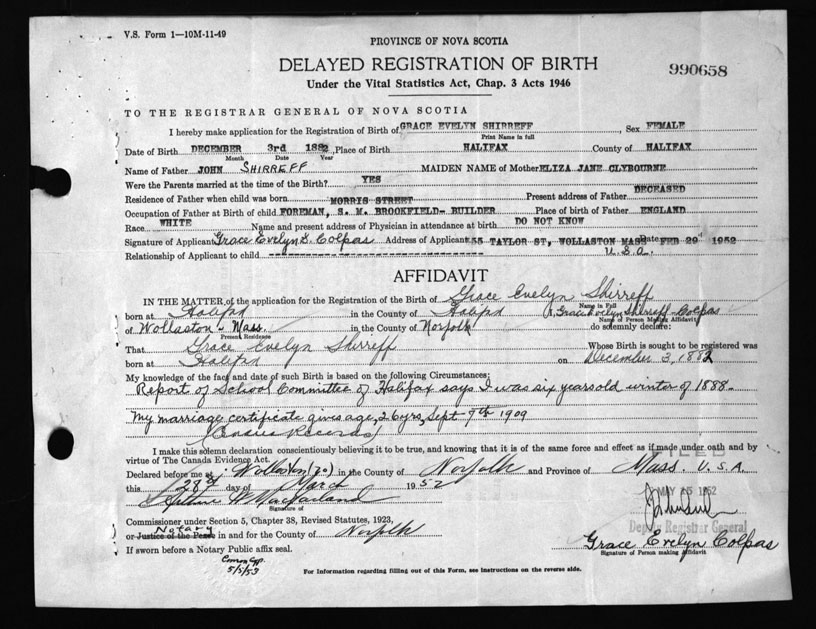 V.S. Form 1—10M-11-49
PROVINCE OF NOVA SCOTIA
DELAYED REGISTRATION OF BIRTH
990658
Under the Vital Statistics Act, Chap. 3 Acts 1946
TO THE REGISTRAR GENERAL OF NOVA SCOTIA
I hereby make application for the Registration of Birth of GRACE EVELYN SHIRREFF, Sex FEMALE
Print Name in full
Date of Birth DECEMBER 3rd 1882, Place of Birth HALIFAX County of HALIFAX
Month Date Year
Name of Father JOHN SHIRREFF MAIDEN NAME of Mother ELIZA JANE CLYBOURNE
Were the Parents married at the time of the Birth? YES
Residence of Father when child was born MORRIS STREET Present address of Father DECEASED
Occupation of Father at Birth of child FOREMAN, S. M. BROOKFIELD- BUILDER Place of birth of Father ENGLAND
Race WHITE Name and present address of Physician in attendance at birth DO NOT KNOW
Signature of Applicant Grace Evelyn S. Colpas Address of Applicant 55 TAYLOR ST, WOLLASTON MASS Date FEB 29 1952
Relationship of Applicant to child U.S.A.
AFFIDAVIT
IN THE MATTER of the application for the Registration of the Birth of Grace Evelyn Shirreff
Name in Full
born at Halifax in the County of Halifax I, Grace Evelyn Shirreff-Colpas
Name of Person Making Affidavit
of Wollaston - Mass. in the County of Norfolk do solemnly declare:
Present Residence
That Grace Evelyn Shirreff Whose Birth is sought to be registered was
born at Halifax on December 3, 1882
My knowledge of the fact and date of such Birth is based on the following Circumstances:
Report of School Committee of Halifax says I was six years old winter of 1888-
My marriage certificate gives age, 26 yrs, Sept 9th 1909
(Census Records)
I make this solemn declaration conscientiously believing it to be true, and knowing that it is of the same force and effect as if made under oath and by
virtue of The Canada Evidence Act.
FILED
Declared before me at Wollaston (70) in the County of Norfolk and Province of Mass. U.S.A.
this 28th day of March 1952
MAY 15 1952
Arthur W MacFarland
Signature of
Deputy Registrar General
Commissioner under Section 5, Chapter 38, Revised Statutes, 1923,
Notary
or Justice of the Peace in and for the County of Norfolk
Grace Evelyn Colpas
Signature of Person making Affidavit
If sworn before a Notary Public affix seal.
Comm Exp.
5/5/53
For Information regarding filling out of this Form, see instructions on the reverse side.